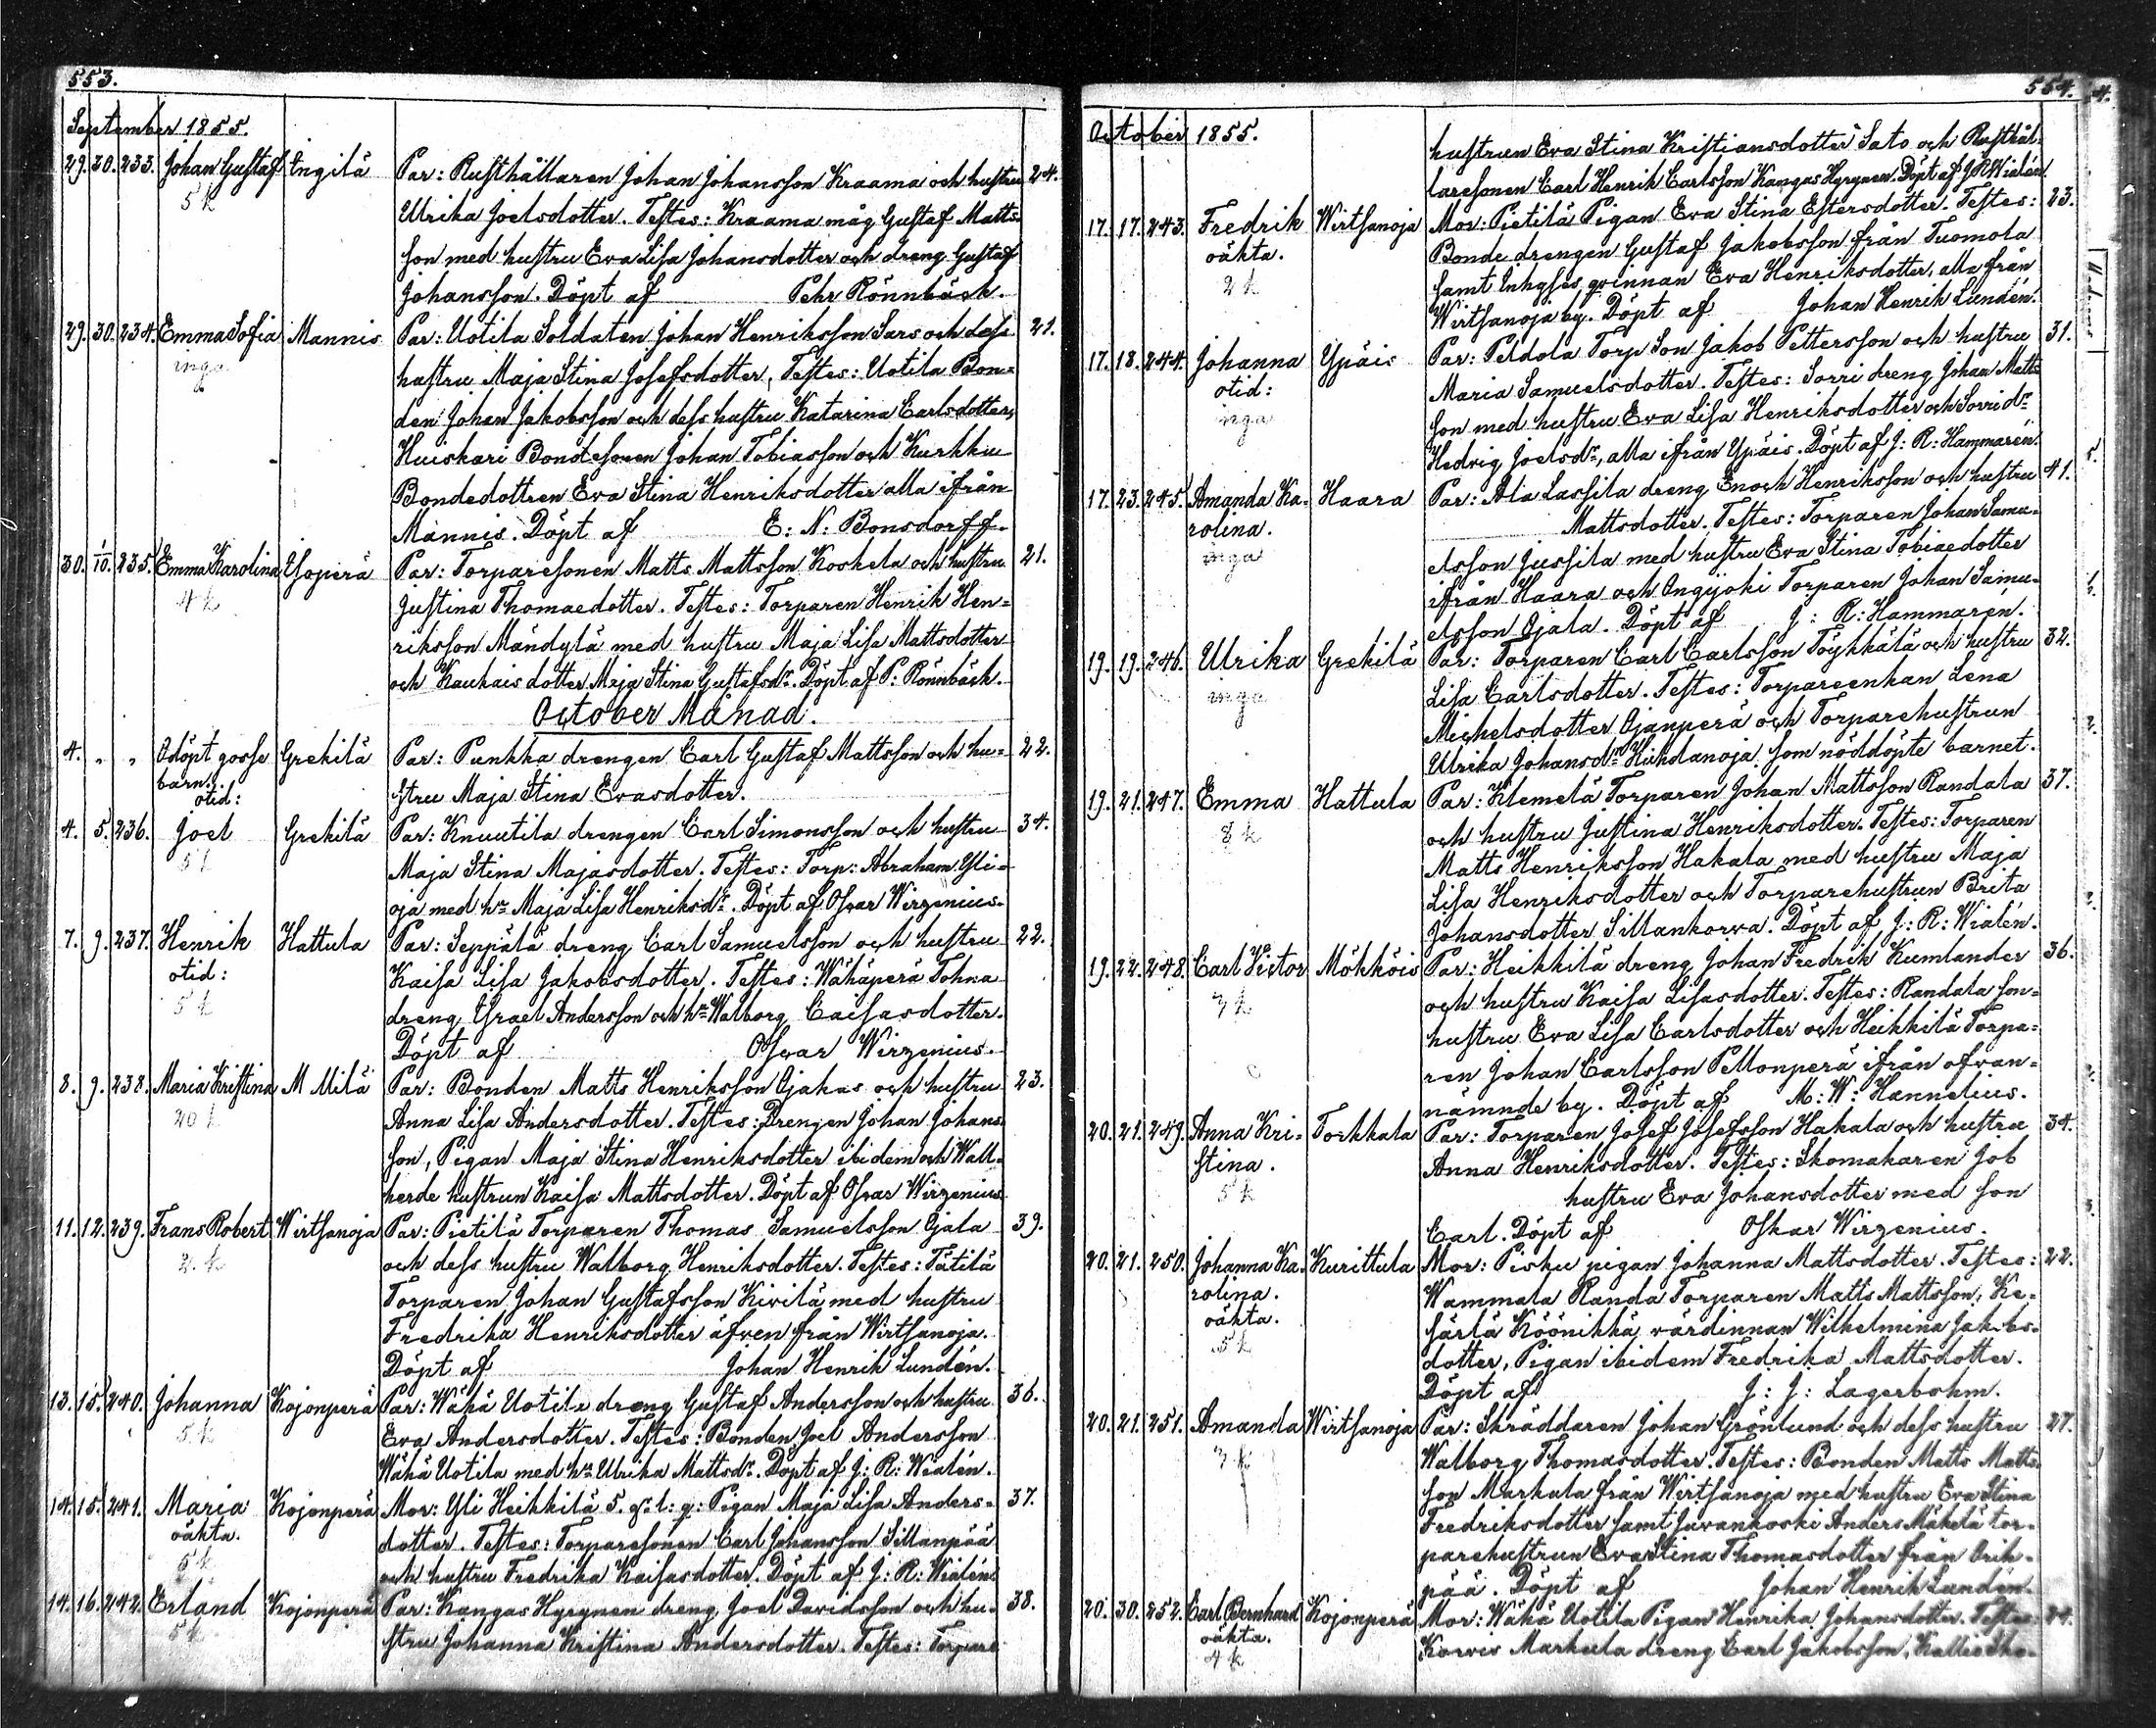 553.
September 1855.
29. 30. 233. Johan Gustaf Engilä Par: Rusthållaren Johan Johansson Kraama och hustru 24.
5 k Ulrika Joelsdotter. Testes: Kraama måg Gustaf Matts-
son med hustru Eva Lisa Johansdotter och dreng Gustaf
Johansson. Döpt af Pehr Rönnbäck.
29. 30. 234. Emma Sofia Mannis Par: Uotila Soldaten Johan Henriksson Sars och dess 21.
inga hustru Maja Stina Josefsdotter, Testes: Uotila Bon-
den Johan Jakobsson och dess hustru Katarina Carlsdotter,
Huiskari Bondesonen Johan Tobiasson och Kurkku
Bondedottren Eva Stina Henriksdotter alla ifrån
Mannis. Döpt af E: N: Bonsdorff.
30. 1/10. 235. Emma Karolina Isoperä Par: Torparesonen Matts Mattsson Koskela och hustru 21.
4 k Justina Thomaedotter. Testes: Torparen Henrik Hen-
riksson Mändylä med hustru Maja Lisa Mattsdotter
och Kauhais dotter Maja Stina Gustafsdr. Döpt af P: Rönnbäck.
October Månad.
4. „ „ Odöpt gosse Grekilä Par: Punkka drengen Carl Gustaf Mattsson och hu- 22.
barn. stru Maja Stina Evasdotter.
otid:
4. 5. 236. Joel Grekilä Par: Knuutila drengen Carl Simonsson och hustru 34.
5 k Maja Stina Majasdotter. Testes: Torp: Abraham Yli-
oja med hu Maja Lisa Henriksdr. Döpt af Osvar Wirzenius.
7. 9. 237. Henrik Hattula Par: Seppälä dreng Carl Samuelsson och hustru 22.
otid: Kaisa Lisa Jakobsdotter. Testes: Wähäperä Tohna
5 k dreng Israel Andersson och hu Walborg Caisasdotter.
Döpt af Osvar Wirzenius.
8. 9. 238. Maria Kristina M Milä Par: Bonden Matts Henriksson Ojakas och hustru 23.
20 k Anna Lisa Andersdotter. Testes: Drengen Johan Johans-
son, Pigan Maja Stina Henriksdotter ibidem och Wall-
herde hustrun Kaisa Mattsdotter. Döpt af Osvar Wirzenius
11. 12. 239. Frans Robert Wirtsanoja Par: Pietilä Torparen Thomas Samuelsson Ojala 39.
2. k och dess hustru Walborg Henriksdotter. Testes: Tätilä
Torparen Johan Gustafsson Kivilä med hustru
Fredrika Henriksdotter äfven från Wirtsanoja.
Döpt af Johan Henrik Lundén.
13. 15. 240. Johanna Kojonperä Par: Wähä Uotila dreng Gustaf Andersson och hustru 36.
5 k Eva Andersdotter. Testes: Bonden Joel Andersson
Wähä Uotila med hu Ulrika Mattsdr. Döpt af J: R: Wialén.
14. 15. 241. Maria Kojonperä Mor: Yli Heikkilä 5. q: l: q: Pigan Maja Lisa Anders- 37.
oäkta. dotter. Testes: Torparesonen Carl Johansson Sillanpää
5 k och hustru Fredrika Kaisasdotter. Döpt af J: R: Wialén
14. 16. 242. Erland Kojonperä Par: Kangas Hyrynen dreng Joel Davidsson och hu- 38.
5 k stru Johanna Kristina Andersdotter. Testes: Torpare
554.
October 1855.
hustrun Eva Stina Kristiansdotter Sato och Rusthål-
laresonen Carl Henrik Carlsson Kangas Hyrynen. Döpt af J R Wialén.
17. 17. 243. Fredrik Wirtsanoja Mor: Pietilä Pigan Eva Stina Estersdotter. Testes: 23.
oäkta. Bonde drengen Gustaf Jakobsson från Tuomola
2 k samt Inhyses qvinnan Eva Henriksdotter, alla från
Wirtsanoja by. Döpt af Johan Henrik Lundén.
17. 18. 244. Johanna Ypäis Par: Peldola Torp Son Jakob Pettersson och hustru 31.
otid: Maria Samuelsdotter. Testes: Sorri dreng Johan Matts-
inga son med hustru Eva Lisa Henriksdotter och Sorri dr
Hedvig Joelsdr, alla ifrån Ypäis. Döpt af J: R: Hammarén.
17. 23. 245. Amanda Ka- Haara Par: Ala Lassila dreng Enoch Henriksson och hustru 41.
rolina. Mattsdotter. Testes: Torparen Johan Samu-
inga elsson Jussila med hustru Eva Stina Tobiaedotter
ifrån Haara och Ongijoki Torparen Johan Samu-
elsson Ojala. Döpt af J: R: Hammarén.
19. 19. 246. Ulrika Grekilä Par: Torparen Carl Carlsson Töykkälä och hustru 32.
inga Lisa Carlsdotter. Testes: Torpareenkan Lena
Michelsdotter Ojanperä och Torparehustrun
Ulrika Johansdr Huhdanoja som nöddöpte barnet.
19. 21. 247. Emma Hattula Par: Klemelä Torparen Johan Mattsson Randala 37.
8 k och hustru Justina Henriksdotter. Testes: Torparen
Matts Henriksson Hakala med hustru Maja
Lisa Henriksdotter och Torparehustrun Brita
Johansdotter Sillankorva. Döpt af J: R: Wialén.
19. 22. 248. Carl Victor Mökköis Par: Heikkilä dreng Johan Fredrik Kumlander 36.
7 k och hustru Kaisa Lisasdotter. Testes: Randala son-
hustru Eva Lisa Carlsdotter och Heikkilä Torpa-
ren Johan Carlsson Pellonperä ifrån ofvan-
nämnde by. Döpt af M: W: Hannelius.
20. 21. 249. Anna Kri- Torkkala Par: Torparen Josef Josefsson Hakala och hustru 34.
stina. Anna Henriksdotter. Testes: Skomakaren Job
5 k hustru Eva Johansdotter med son
Carl. Döpt af Oskar Wirzenius.
20. 21. 250. Johanna Ka- Kurittula Mor: Pisku pigan Johanna Mattsdotter. Testes: 22.
rolina. Wammala Randa Torparen Matts Mattsson, Ke-
oäkta. särlä Köönikkä värdinnan Wilhelmina Jakobs-
5 k dotter, Pigan ibidem Fredrika Mattsdotter.
Döpt af J: J: Lagerbohm.
20. 21. 251. Amanda Wirtsanoja Par: Skräddaren Johan Grönlund och dess hustru 27.
7 k Walborg Thomasdotter. Testes: Bonden Matts Matts-
son Markula från Wirtsanoja med hustru Eva Stina
Fredriksdotter samt Juvankoski Anders Mäkelä tor-
parehustrun Eva Stina Thomasdotter från Orih-
pää. Döpt af Johan Henrik Lundén.
20. 30. 252. Carl Bernhard Kojonperä Mor: Wähä Uotila Pigan Henrika Johansdotter. Testes
oäkta. Korvis Markula dreng Carl Jakobsson, Kallis Sko-
4 k